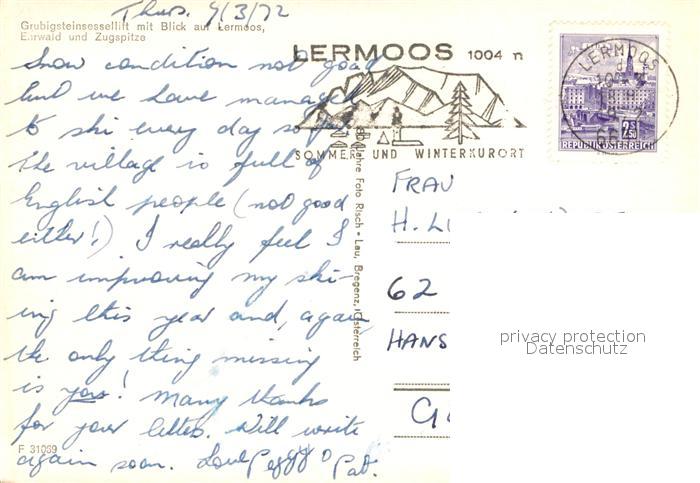 Thurs. 9/3/72
Grubigsteinsessellift mit Blick auf Lermoos,
Ehrwald und Zugspitze
Snow condition not good
but we have managed
to ski every day so far.
The village is full of
English people (not good
either!) I really feel I
am improving my ski-
ing this year and, again,
the only thing missing
is you! Many thanks
for your letter. Will write
again soon. Love Peggy & Pat.
F 31069
Jahre Foto Risch - Lau, Bregenz, Österreich
LERMOOS 1004 m
SOMMER UND WINTERKURORT
LERMOOS
2.50
REPUBLIK ÖSTERREICH
FRAU
H. L
62
HANS
G
privacy protection
Datenschutz